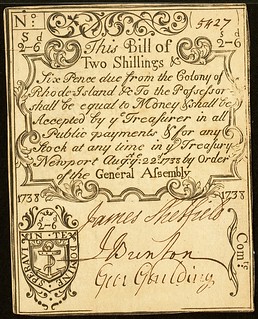 No: 5427
S d
2-6
S d
2-6
This Bill of
Two Shillings &
Six Pence due from the Colony of
Rhode Island &c To the Possessor
shall be equal to Money & shall be
Accepted by ye Treasurer in all
Public payments & for any
Stock at any time in ye Treasury
Newport Augst 22d 1738 by Order
of the General Assembly
1738 1738
James Sheffield
J Brenton
Geo Goulding
Com:
S d
2-6
IN TE DOMINE